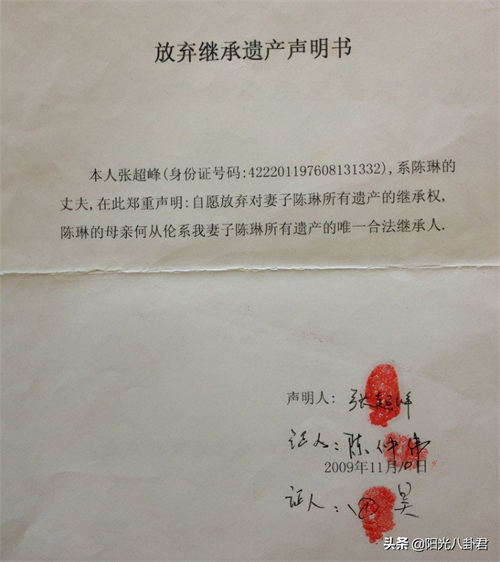 放弃继承遗产声明书
本人张超峰(身份证号码:422201197608131332),系陈琳的
丈夫,在此郑重声明:自愿放弃对妻子陈琳所有遗产的继承权,
陈琳的母亲何从伦系我妻子陈琳所有遗产的唯一合法继承人.
声明人: 张超峰
证人: 陈仲
2009年11月10日
证人: 昊
头条 @阳光八卦君